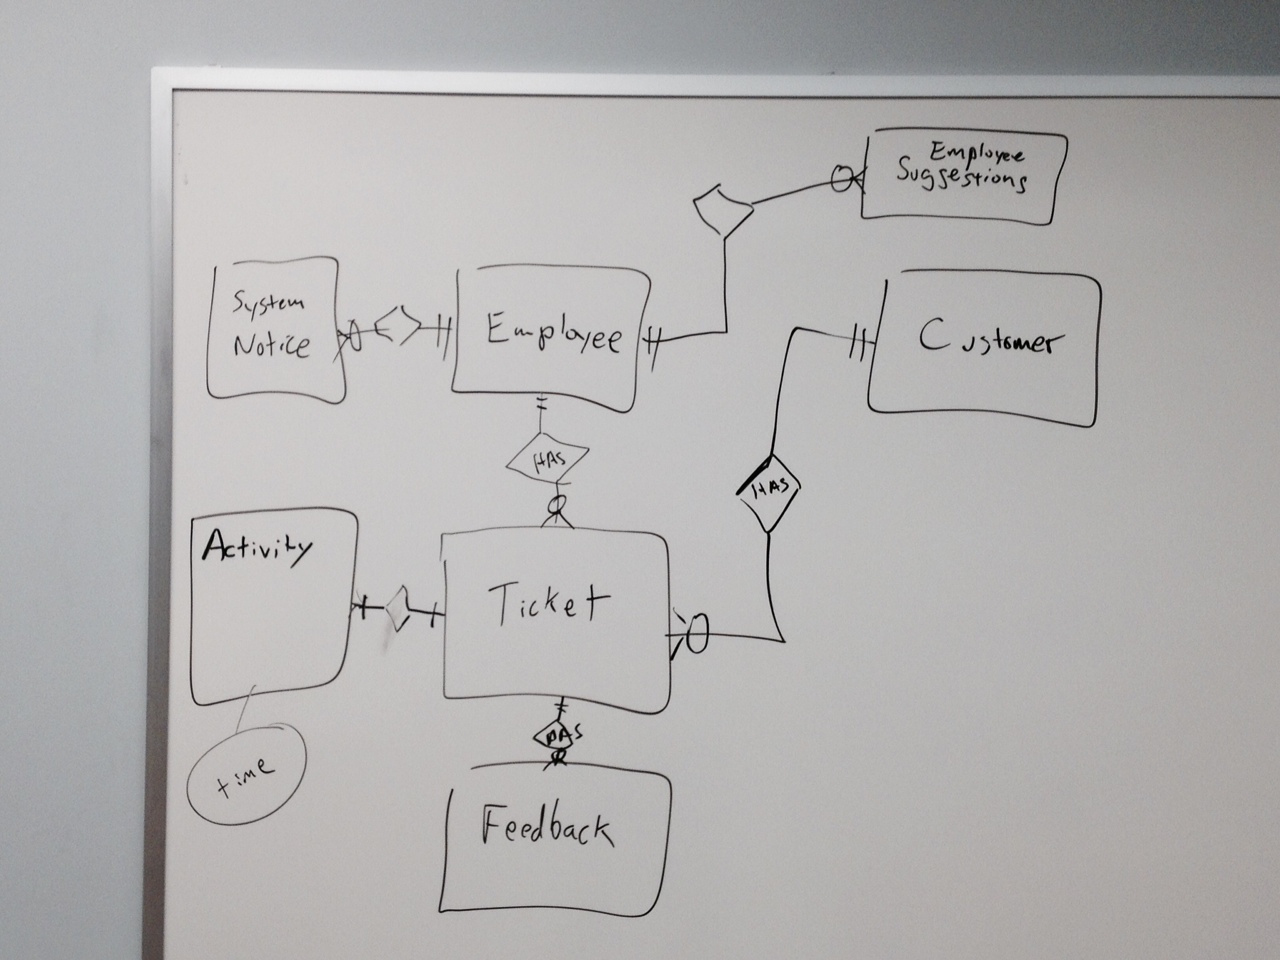 Employee
Suggestions
System
Notice
Employee
Customer
HAS
HAS
Activity
Ticket
HAS
time
Feedback